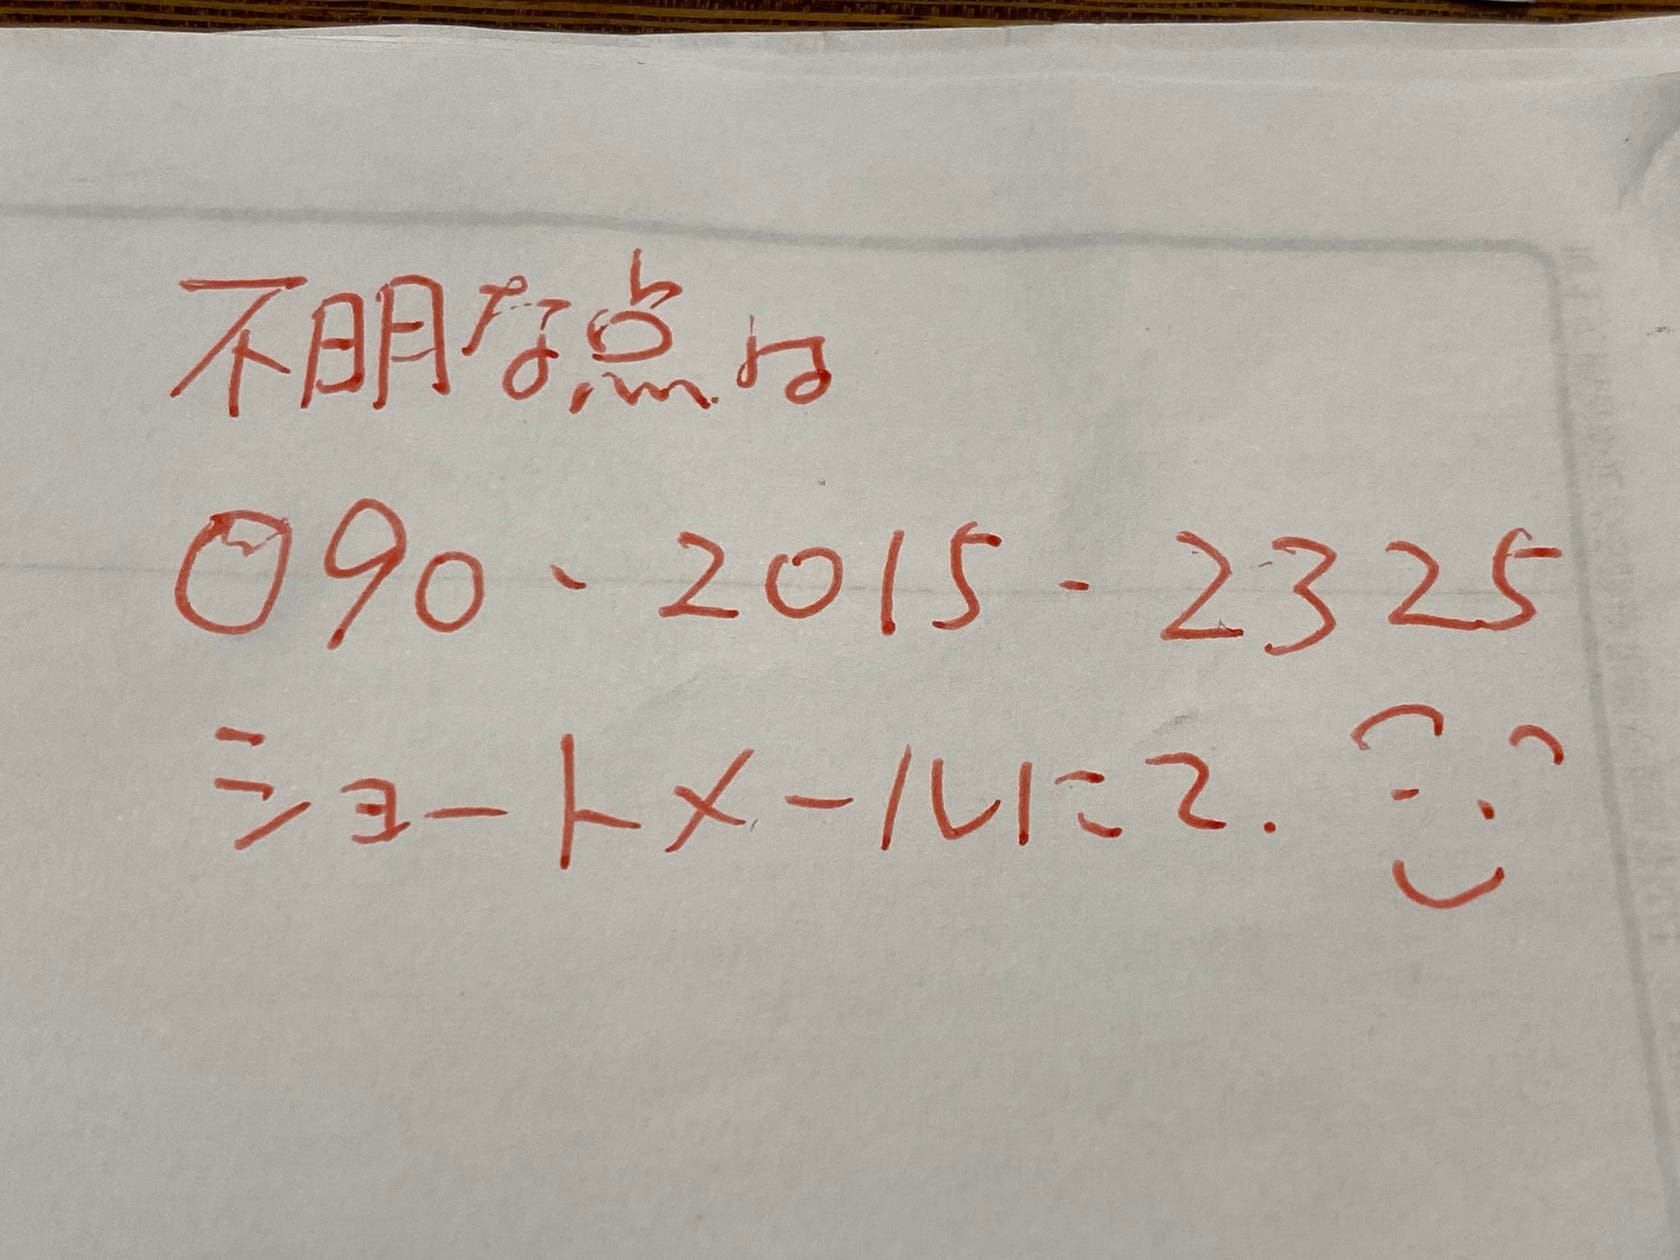 不明な点は
090-2015-2325
ショートメールにて.